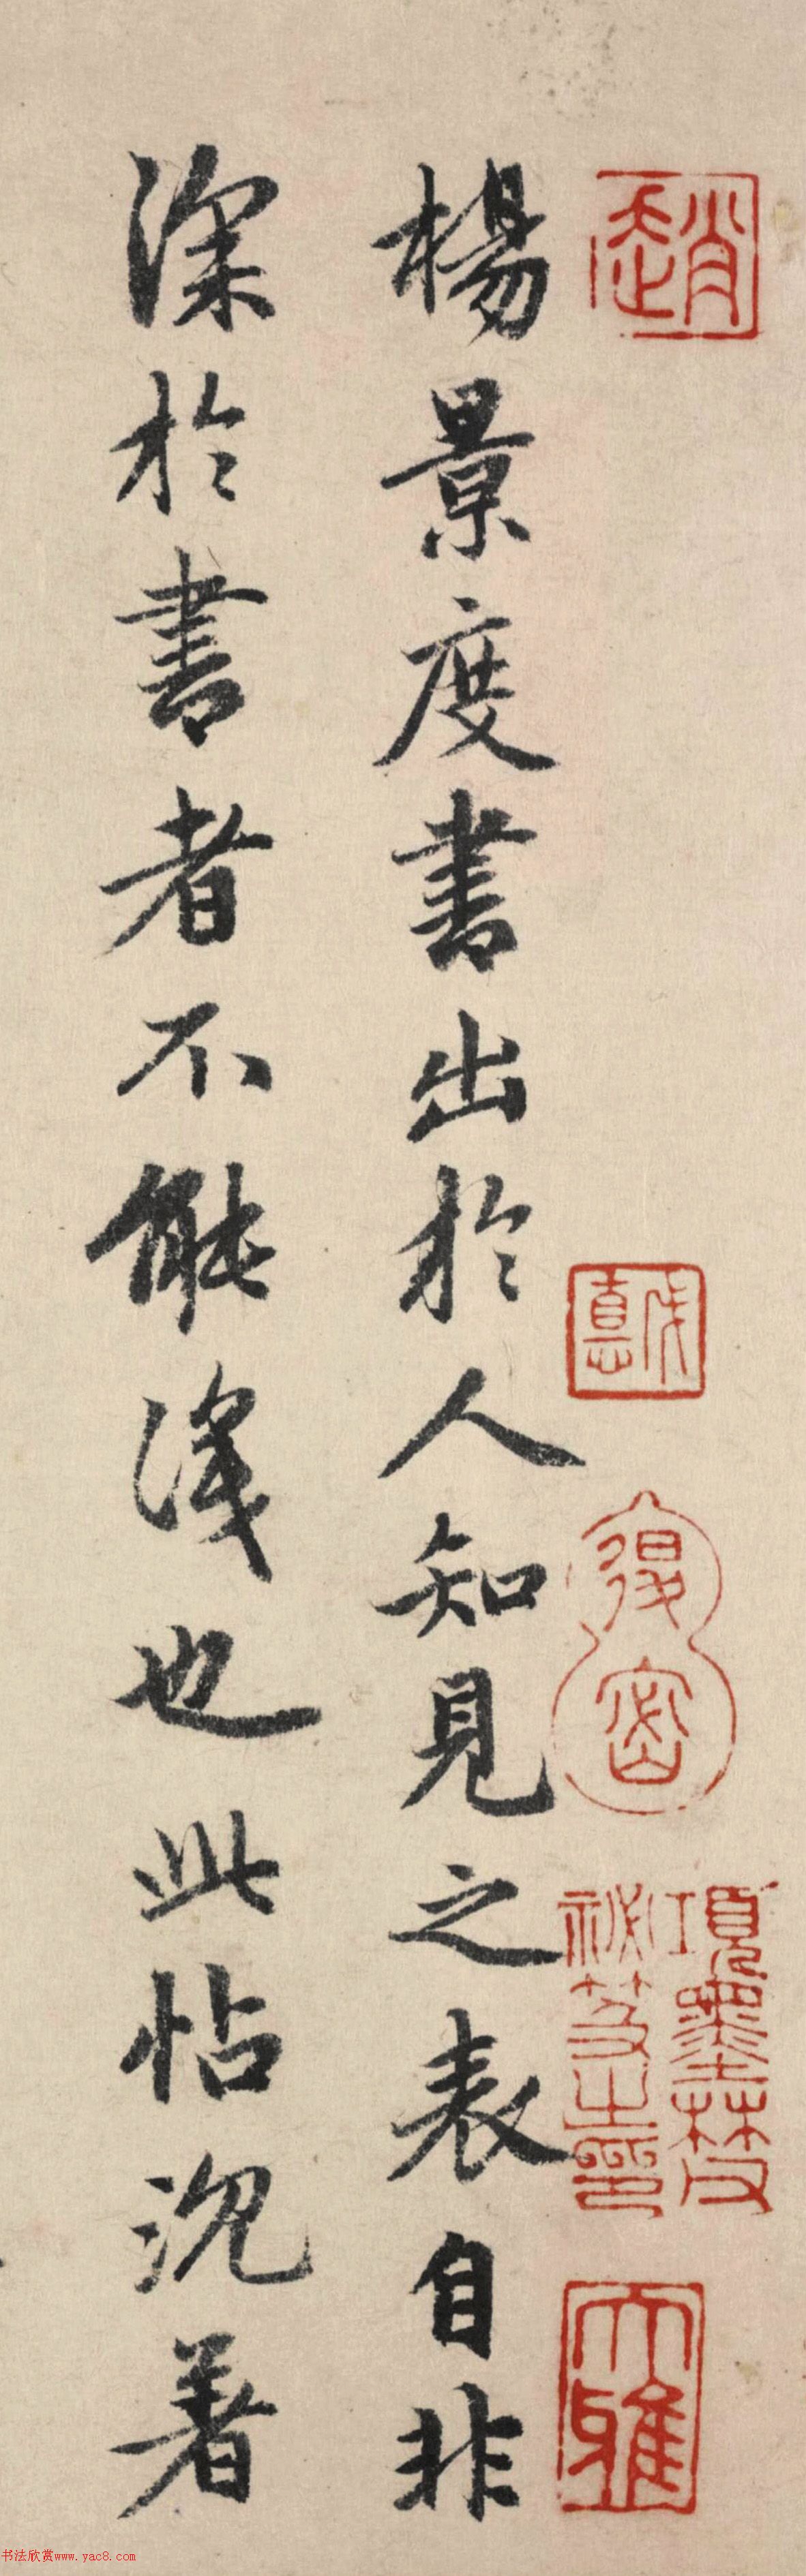 趙
項墨林
祕笈之印
大雅
楊景度書出於人知見之表自非
深於書者不能識也此帖沉著
书法欣赏www.yac8.com